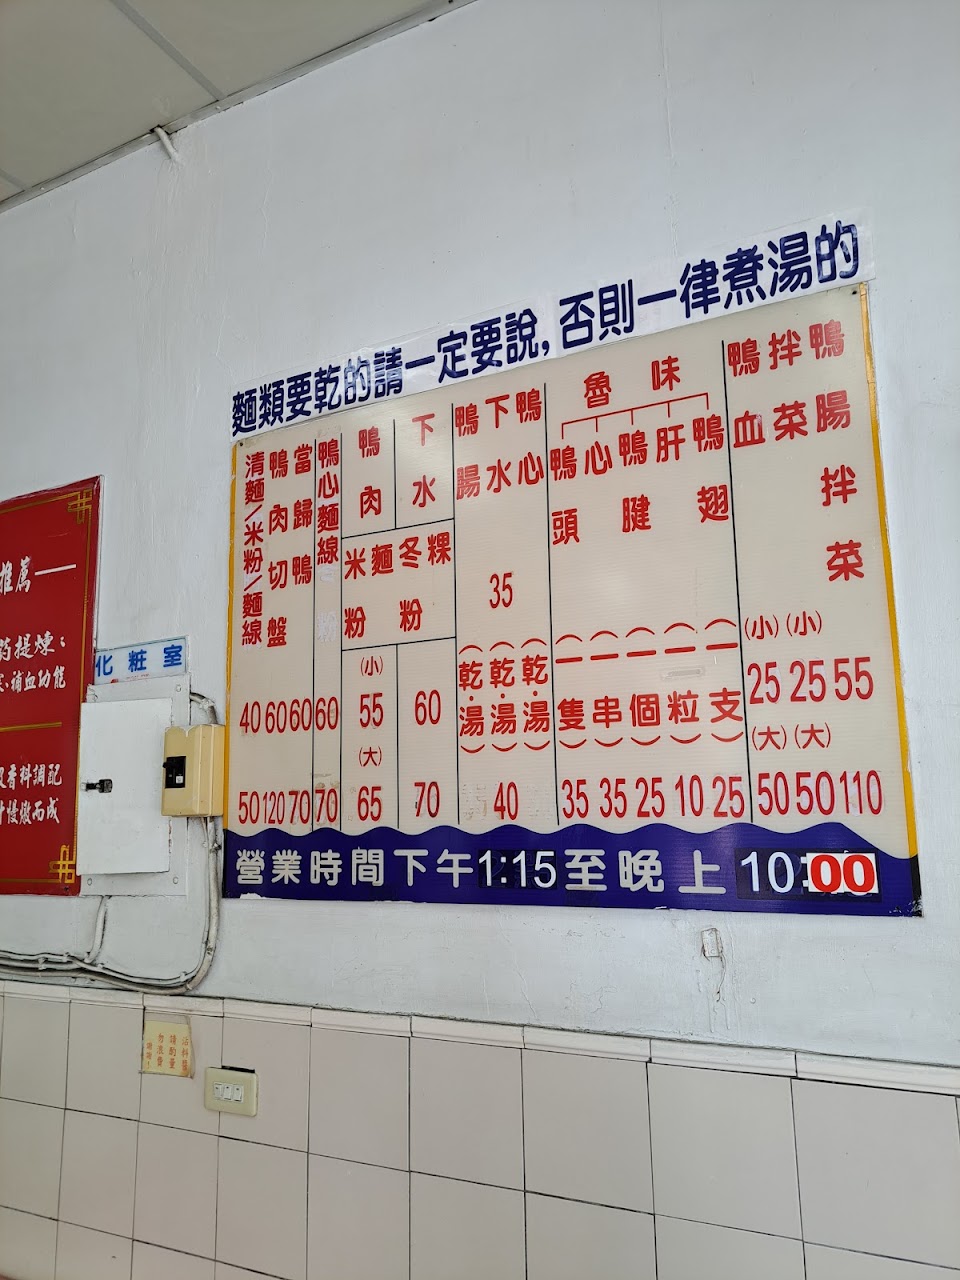 麵類要乾的請一定要說,否則一律煮湯的
清麵/米粉/麵線
40
50
鴨肉切盤
60
120
當歸鴨
60
70
鴨心麵線
60
70
鴨肉
下水
米粉
麵
冬粉
粿
(小)
55
60
(大)
65
70
鴨腸
下水
鴨心
35
(乾.湯)
(乾.湯)
(乾.湯)
40
魯味
鴨頭
(一隻)
35
心
(一串)
35
鴨腱
(一個)
25
肝
(一粒)
10
鴨翅
(一支)
25
鴨血
(小)
25
(大)
50
拌菜
(小)
25
(大)
50
鴨腸拌菜
55
110
營業時間下午1:15至晚上10:00
推薦一
提煉;
補血功能
香料調配
慢燉而成
化粧室
沾料醬
請酌量
勿浪費